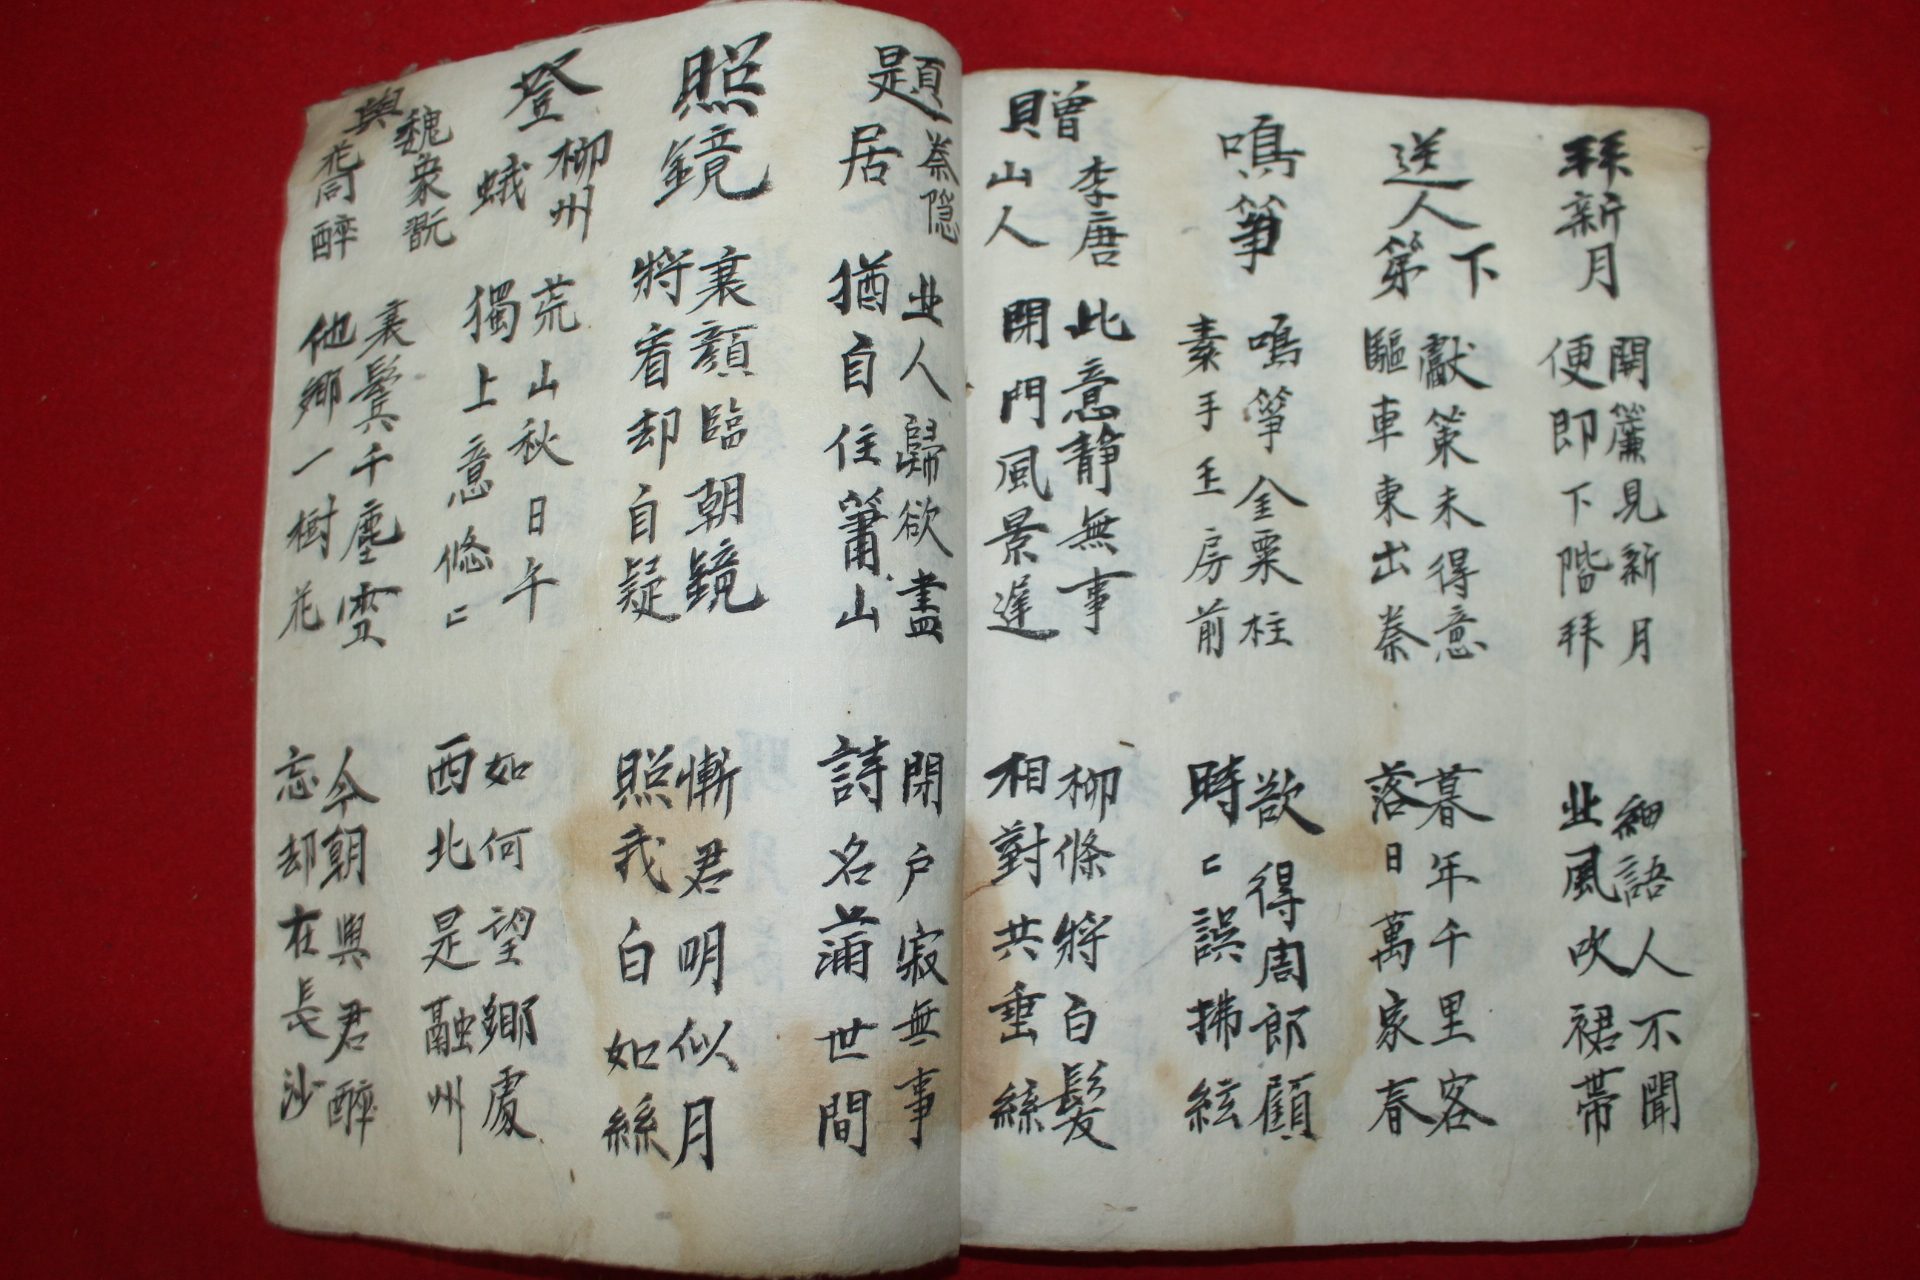 拜新月
開簾見新月
便即下階拜
細語人不聞
北風吹裙帶
送人下
第
獻策未得意
驅車東出秦
暮年千里客
落日萬家春
鳴箏
鳴箏金粟柱
素手玉房前
欲得周郎顧
時〻誤拂絃
贈李唐
山人
此意靜無事
閉門風景遲
柳條將白髮
相對共垂絲
題秦隱
居
北人歸欲盡
猶自住蕭山
閉戶寂無事
詩名滿世間
照鏡
衰顔臨朝鏡
將看却自疑
慚君明似月
照我白如絲
登柳州
蛾
荒山秋日午
獨上意悠〻
如何望鄉處
西北是融州
與魏衆旣
花同醉
衰鬓千塵雪
他鄉一樹花
今朝與君醉
忘却在長沙